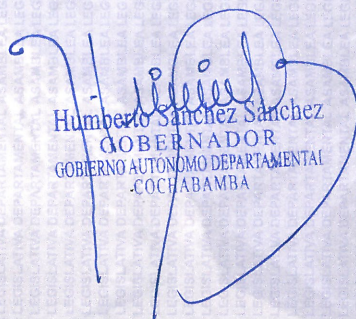 Humberto Sánchez Sánchez
GOBERNADOR
GOBIERNO AUTÓNOMO DEPARTAMENTAL
COCHABAMBA